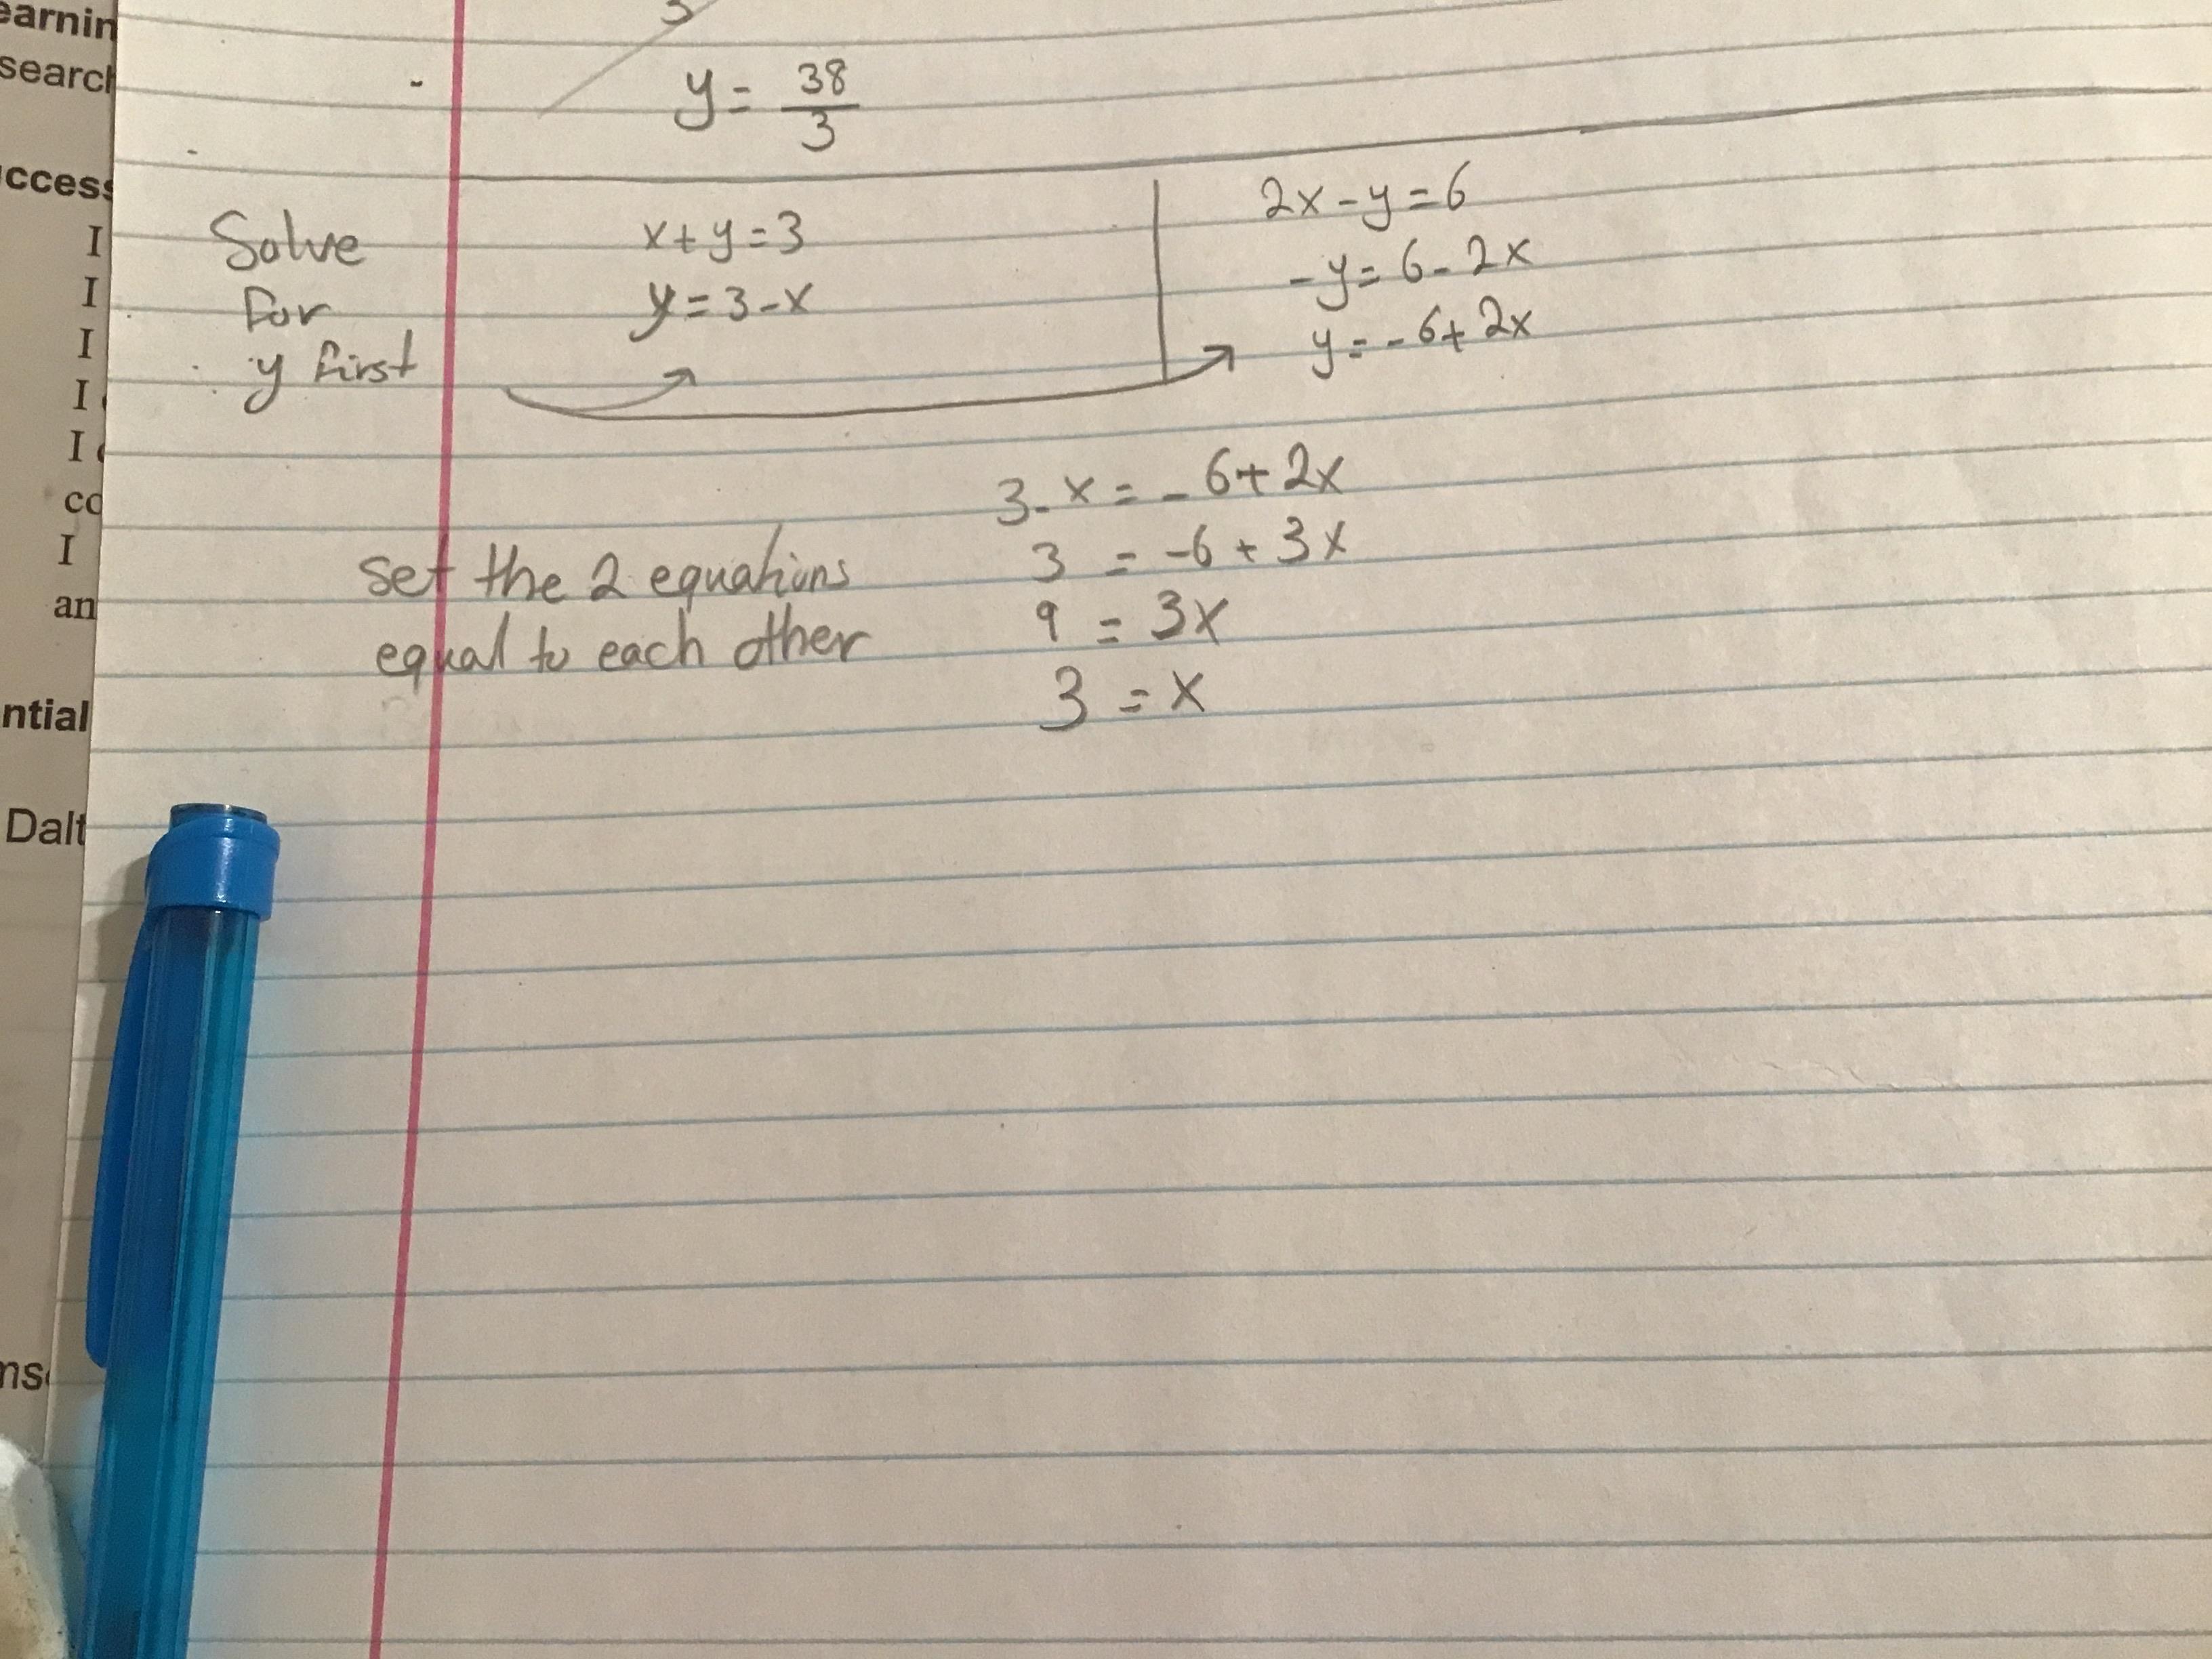 earnin
search
uccess
I
I
I
I
I
co
I
an
ntial
Dalt
ms
y = 38/3
Solve
for
y first
x + y = 3
y = 3 - x
2x - y = 6
- y = 6 - 2x
y = - 6 + 2x
set the 2 equations
equal to each other
3 - x = - 6 + 2x
3 = -6 + 3x
9 = 3x
3 = x